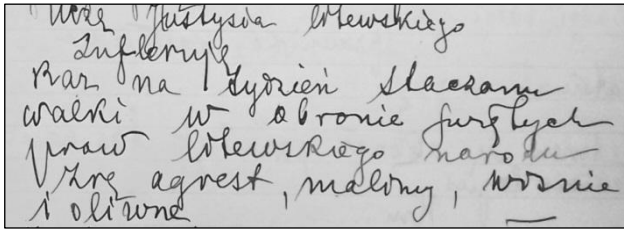 Uczę Justysia litewskiego
Raz na tydzień staczam
walki w obronie świętych
praw litewskiego narodu
Żrę agrest, maliny, wiśnie
i oliwne